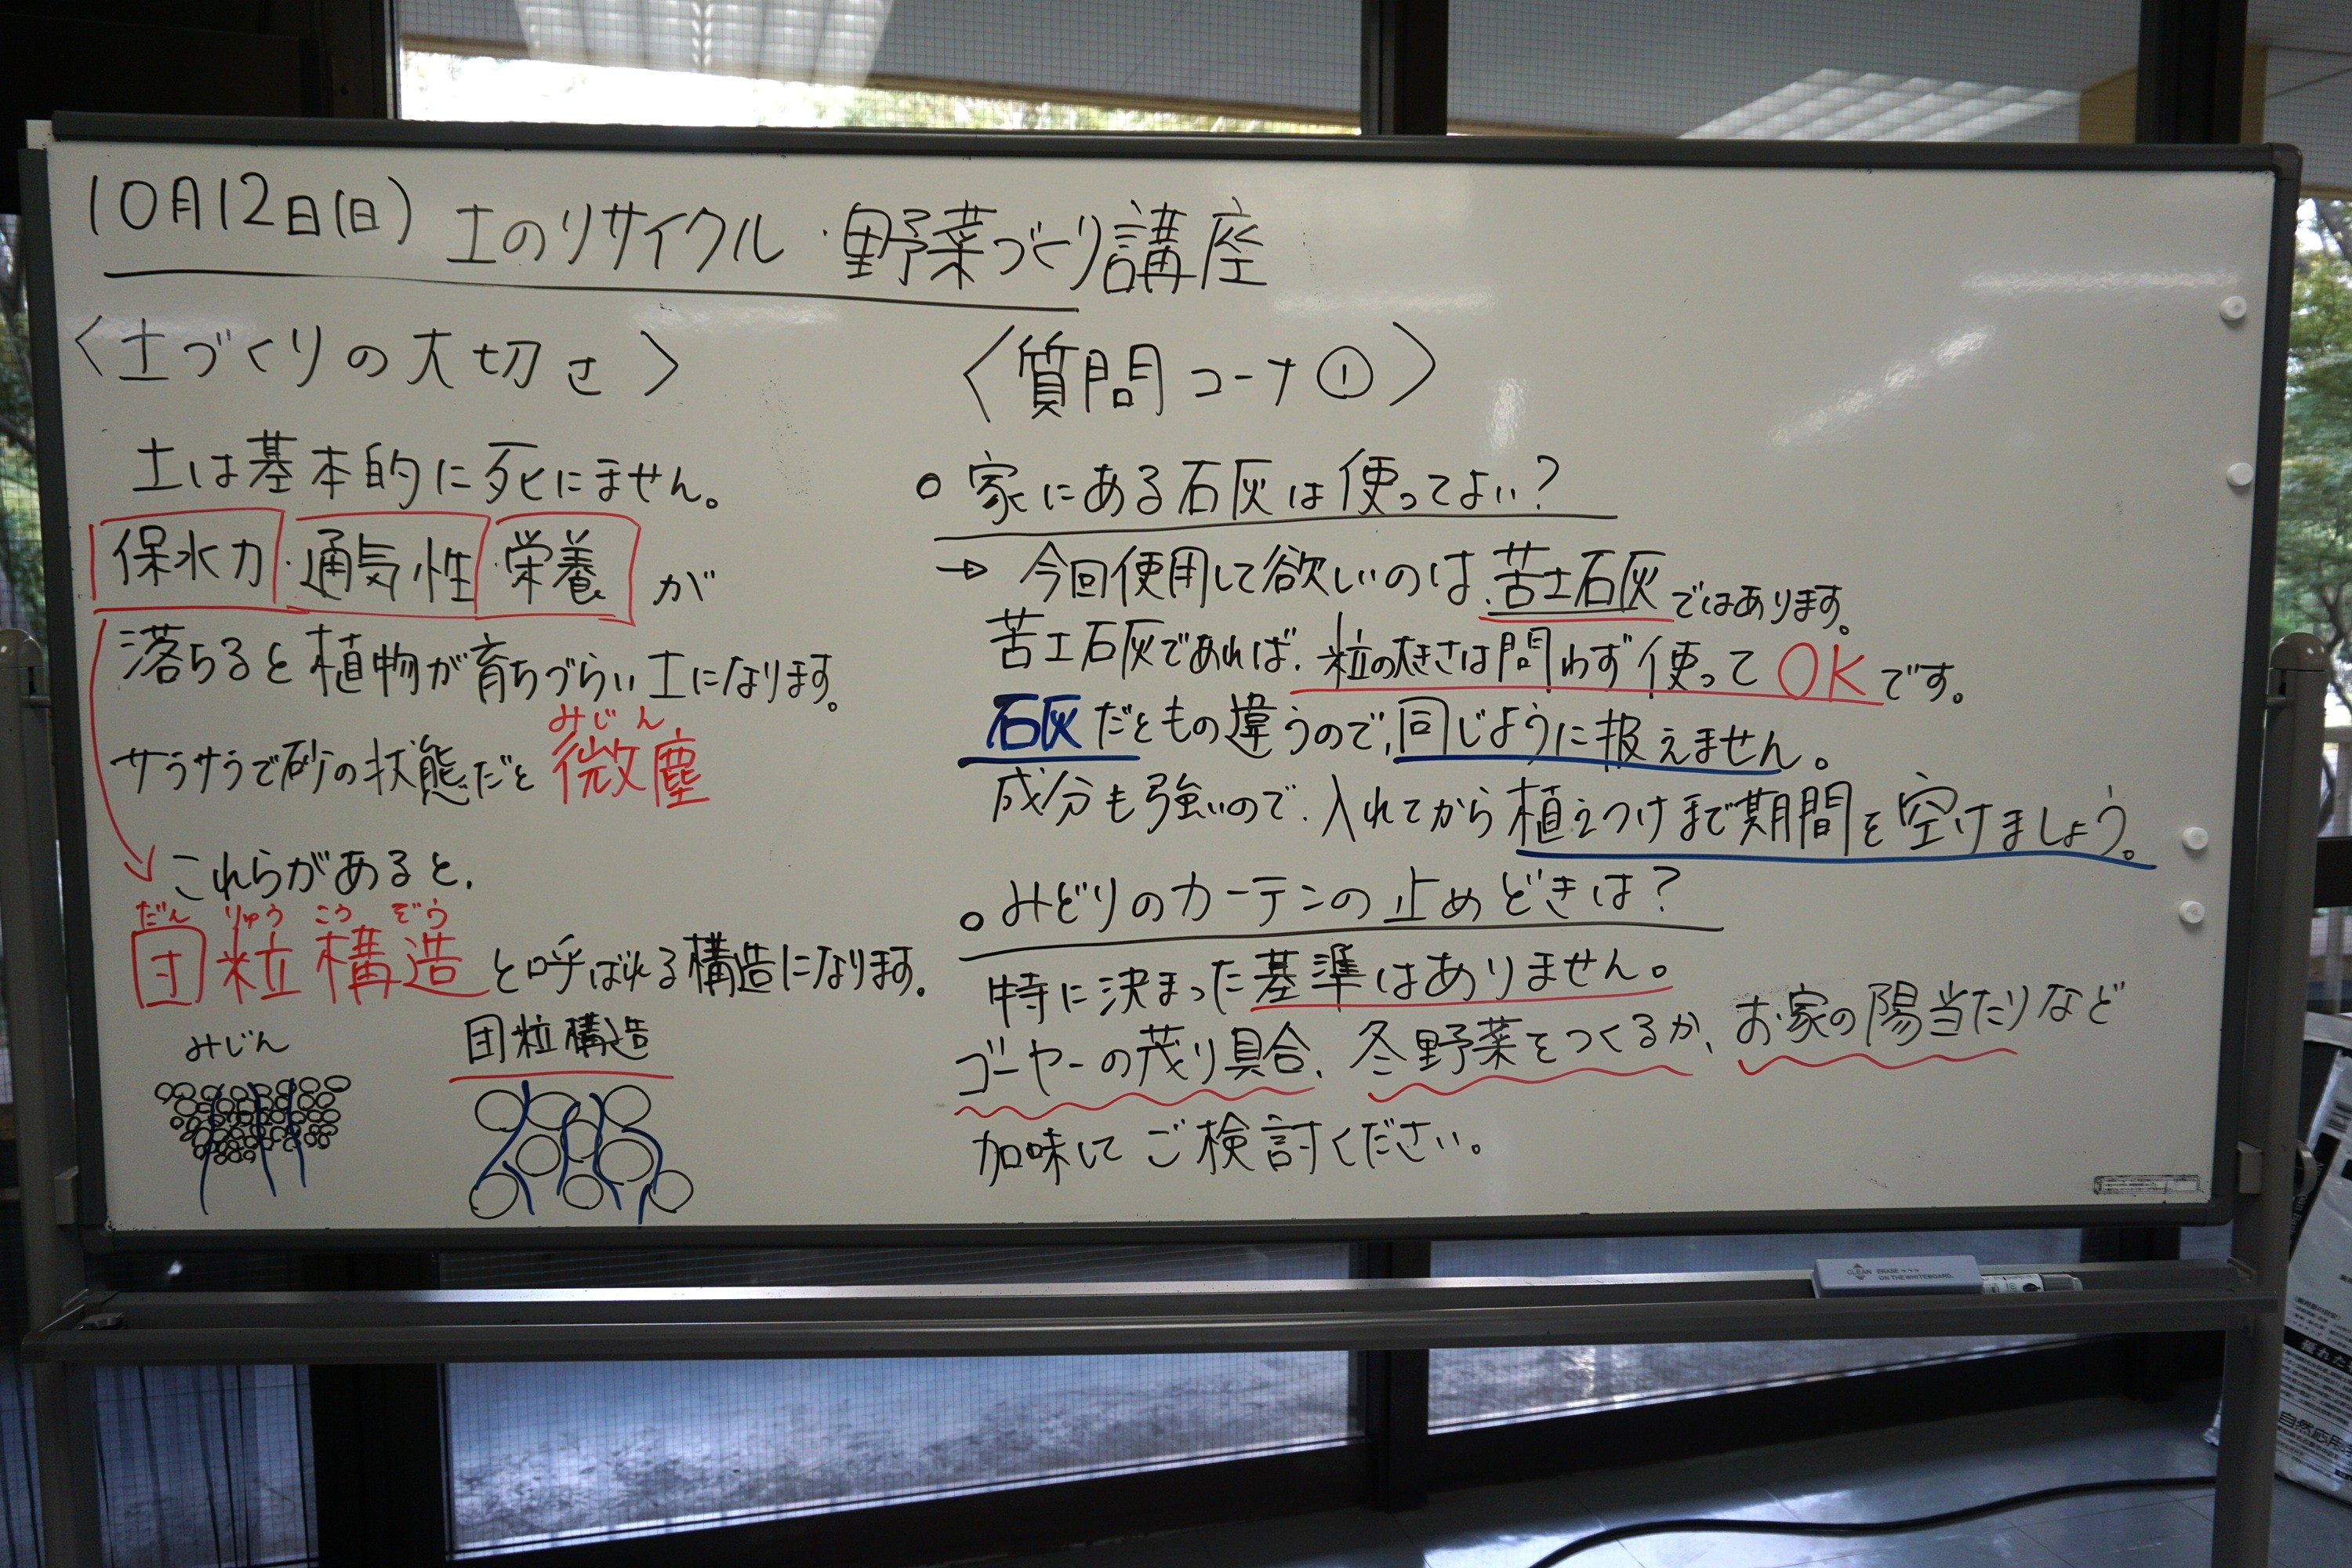 10月12日(日) 土のリサイクル・野菜づくり講座
〈土づくりの大切さ〉
土は基本的に死にません。
保水力・通気性・栄養が
落ちると植物が育ちづらい土になります。
みじん
サラサラで砂の状態だと微塵
これらがあると、
だんりゅうこうぞう
団粒構造と呼ばれる構造になります。
みじん
団粒構造
〈質問コーナ①〉
○家にある石灰は使ってよい?
→今回使用して欲しいのは、苦土石灰ではあります。
苦土石灰であれば、粒の大きさは問わず使ってOKです。
石灰だともの違うので、同じように扱えません。
成分も強いので、入れてから植えつけまで期間を空けましょう。
○みどりのカーテンの止めどきは?
特に決まった基準はありません。
ゴーヤーの茂り具合、冬野菜をつくるか、お家の陽当たりなど
加味してご検討ください。
CLEAN ERASE
ON THE WHITEBOARD